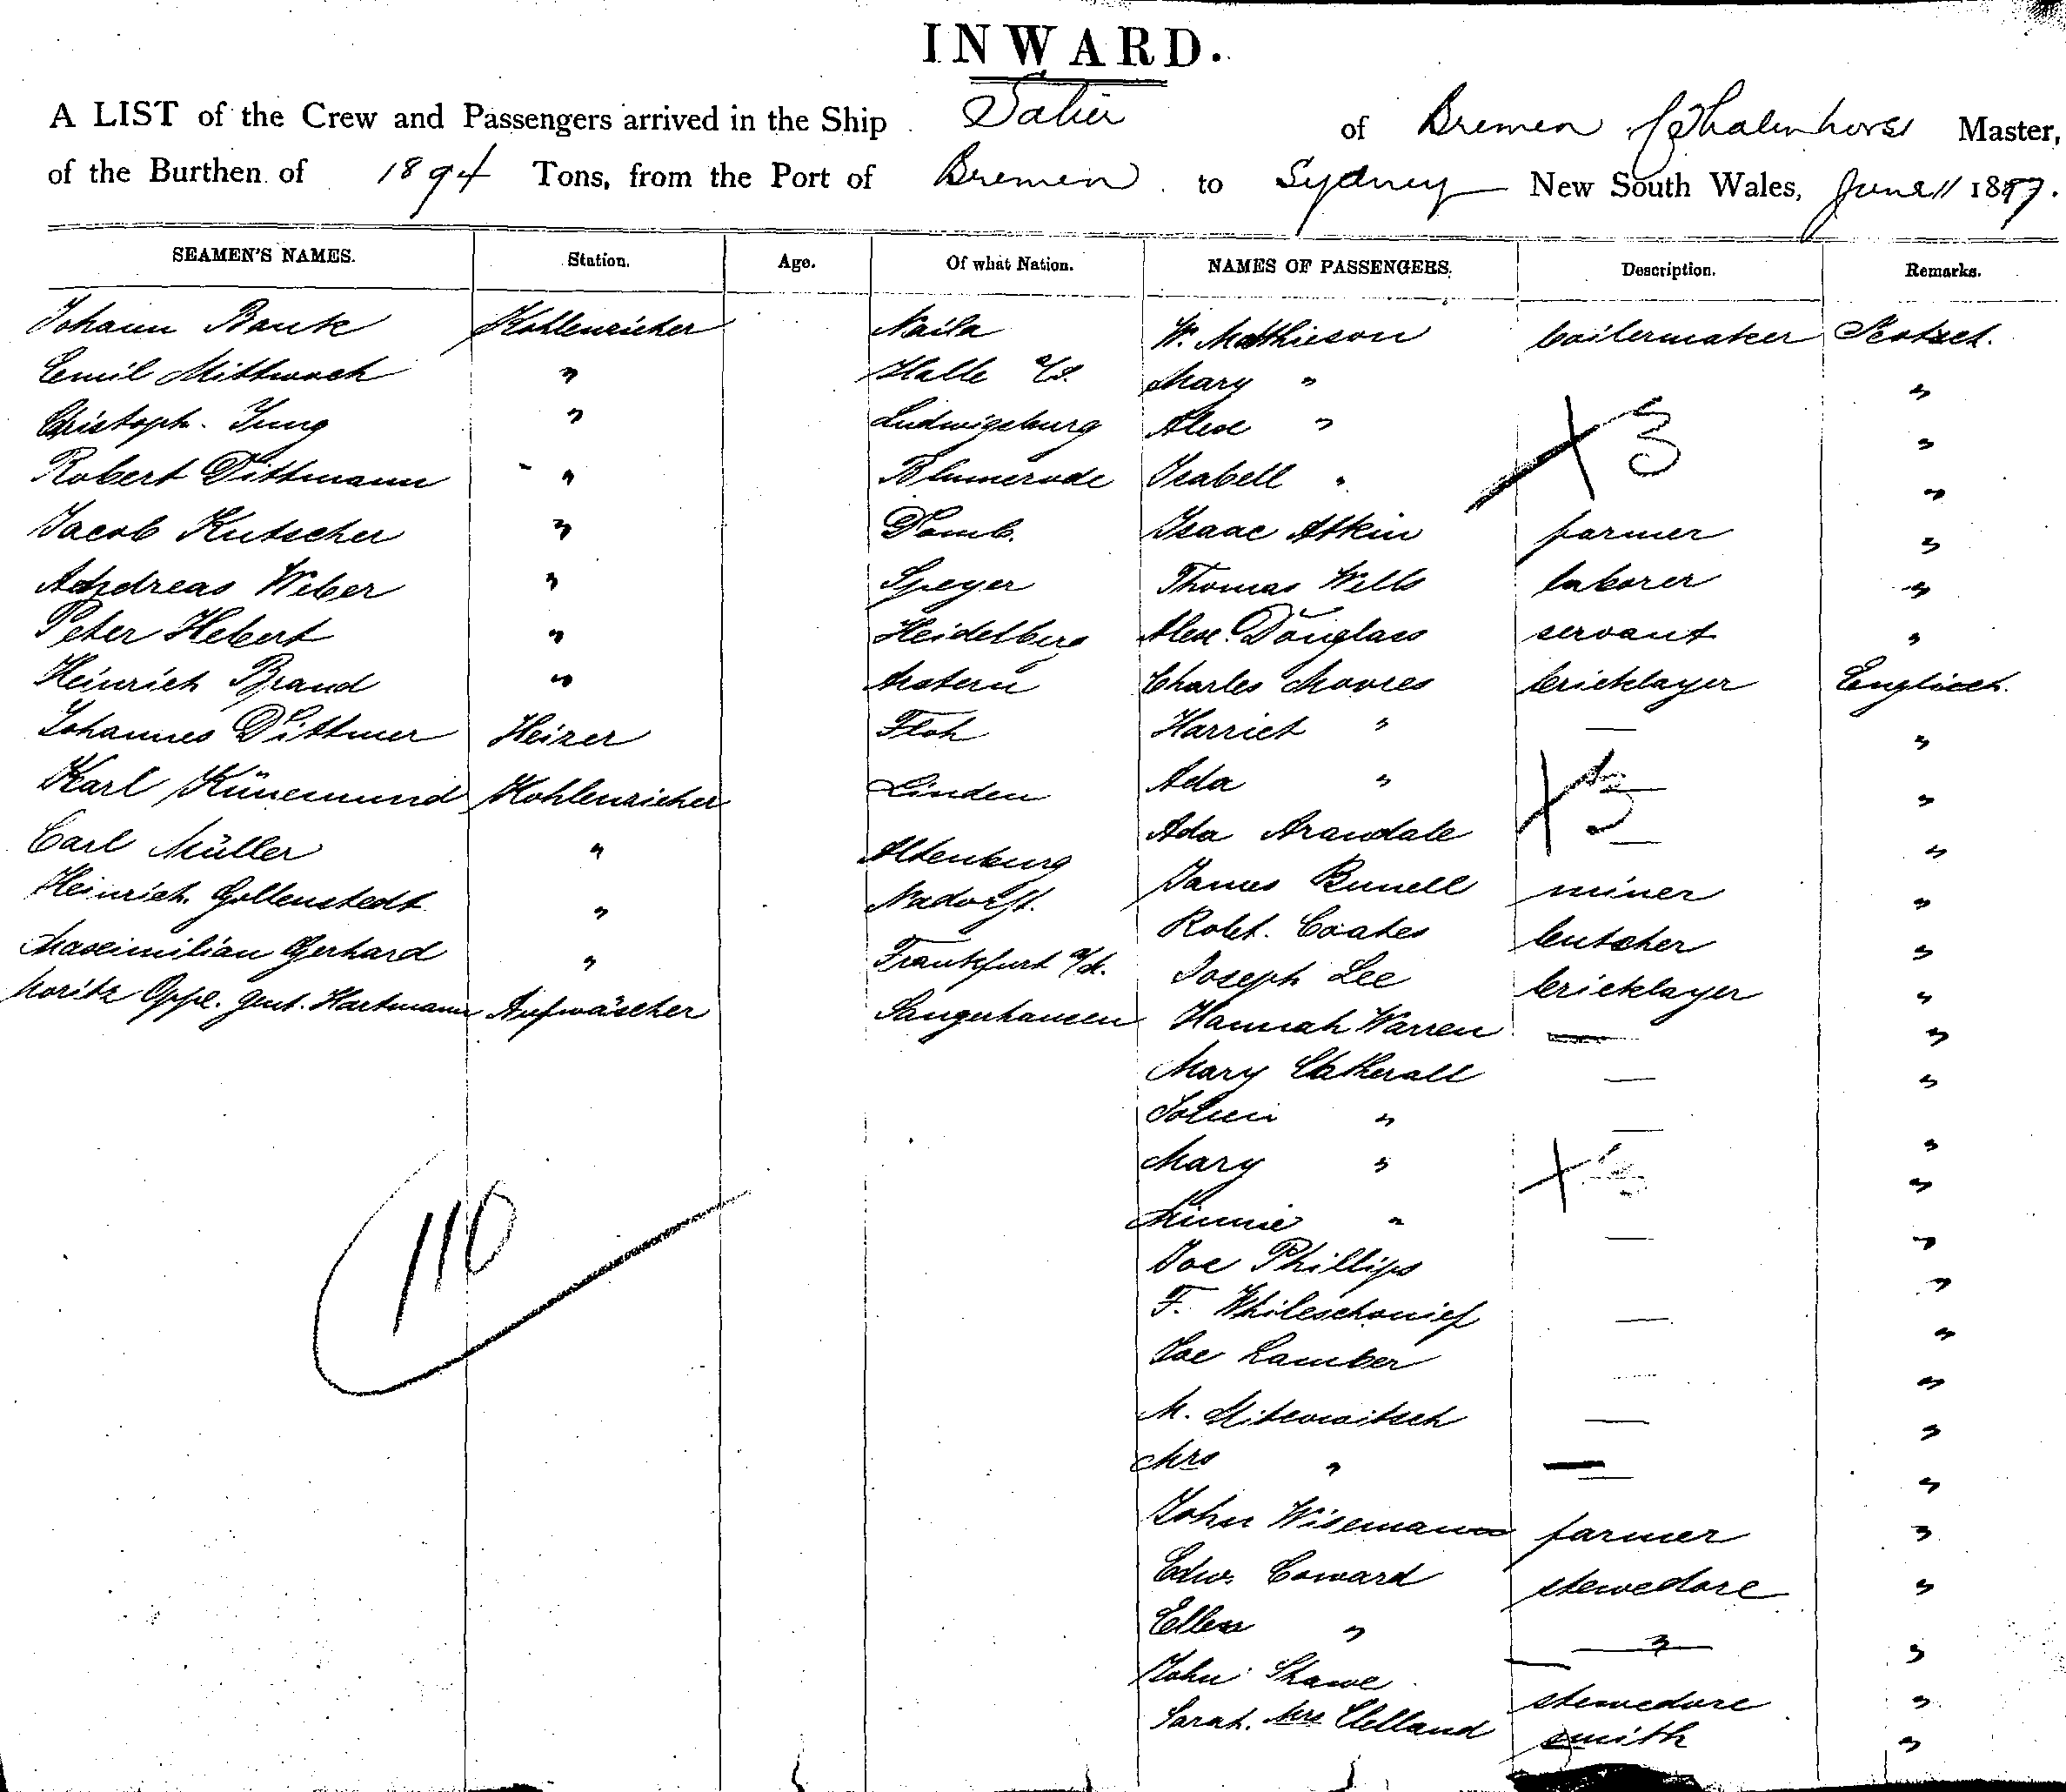 INWARD.
A LIST of the Crew and Passengers arrived in the Ship Salier of Bremen Master,
of the Burthen of 1894 Tons, from the Port of Bremen to Sydney New South Wales, June 11 1887.
SEAMEN'S NAMES. Station. Age. Of what Nation. NAMES OF PASSENGERS. Description. Remarks.
Johann Kohlenzieher Naila W. Matthieson boilermaker
Emil Mittwoch " Halle a/S. Mary " "
Christoph. Jung " Ludwigsburg Alex " "
Robert Dittmann " Blumerode Isabell " "
X 3
Jacob Kutscher " Isaac Atkin farmer "
Andreas Weber " Speyer Thomas Wells laborer "
Peter Hebert " Heidelberg Alex. Douglass servant "
Heinrich Brand " Charles Moores bricklayer English.
Johannes Dittmer Heizer Floh Harriet " — "
Karl Künemund Kohlenzieher Linden Ada " — "
X 3
Carl Müller " Altenburg Ada Arandale — "
Heinrich Gollenstedt " Nadorst. James Bunell miner "
Maximilian Gerhard " Frankfurt a/M. Robt. Coates butcher "
Moritz Oppl. gent. Hartmann Aufwäscher Sangerhausen Joseph Lee bricklayer "
Hannah Warren — "
Mary Catherall — "
" — "
Mary " "
X
Minnie " — "
Joe Phillips "
F. — "
Joe Lamber "
M. — "
Mrs " — "
John Wisemann farmer "
Edw. Coward stewedore "
Ellen " — " "
John Shawe stewedore "
Sarah. Mrs Clelland smith "
110